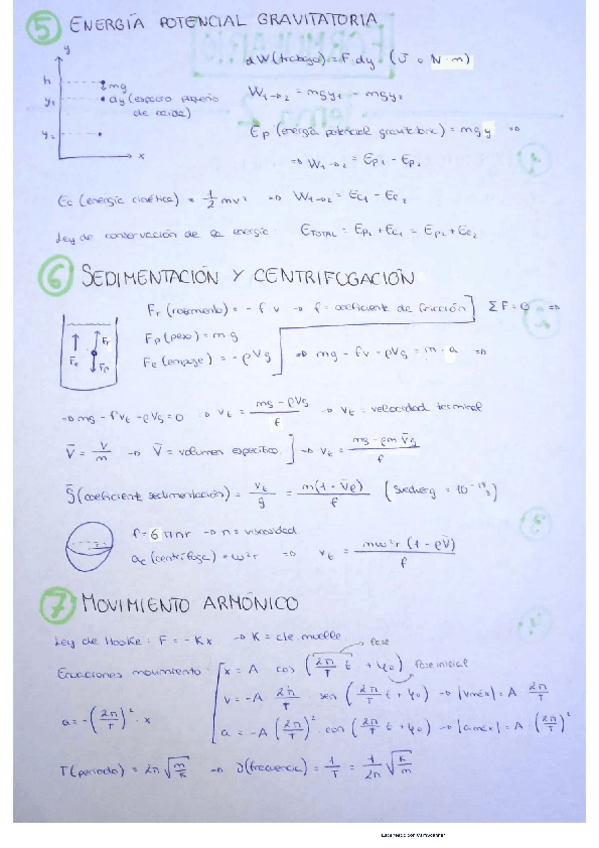 5 ENERGÍA POTENCIAL GRAVITATORIA
y
h
mg
y₁ dy (espacio pequeño
de caída)
y₂
x
dW (trabajo) = F · dy (J o N·m)
W₁→₂ = mgy₁ - mgy₂
Ep (energía potencial gravitatoria) = mgy ⇒
⇒ W₁→₂ = Ep₁ - Ep₂
Ec (energía cinética) = 1/2 mv² ⇒ W₁→₂ = Ec₁ - Ec₂
Ley de conservación de la energía: ETOTAL = Ep₁ + Ec₁ = Ep₂ + Ec₂
6 SEDIMENTACIÓN Y CENTRIFUGACIÓN
Fr (rozamiento) = - f v → f = coeficiente de fricción ΣF = 0 ⇒
Fp (peso) = mg
Fe (empuje) = - ρVg ⇒ mg - fv - ρVg = m · a ⇒
Fe Fr Fp
⇒ mg - fvt - ρVg = 0 ⇒ vt = (mg - ρVg)/f → vt = velocidad terminal
V̄ = V/m → V̄ = volumen específico ] → vt = (mg - ρmV̄g)/f
S̄ (coeficient sedimentación) = vt/g = m(1 - V̄ρ)/f (Svedberg = 10⁻¹³ s)
f = 6πηr → η = viscosidad
ac (centrífuga) = ω²r ⇒ vt = mω²r (1 - ρV̄)/f
7 MOVIMIENTO ARMÓNICO
Ley de Hooke: F = - Kx → K = cte muelle
fase
Ecuaciones movimiento: x = A cos (2π/T t + φ₀) fase inicial
v = -A 2π/T sen (2π/T t + φ₀) → |vmáx| = A 2π/T
a = -(2π/T)² · x
a = -A (2π/T)² cos (2π/T t + φ₀) → |amáx| = A (2π/T)²
T (periodo) = 2π√(m/K) → ν (frecuencia) = 1/T = 1/2π √(K/m)